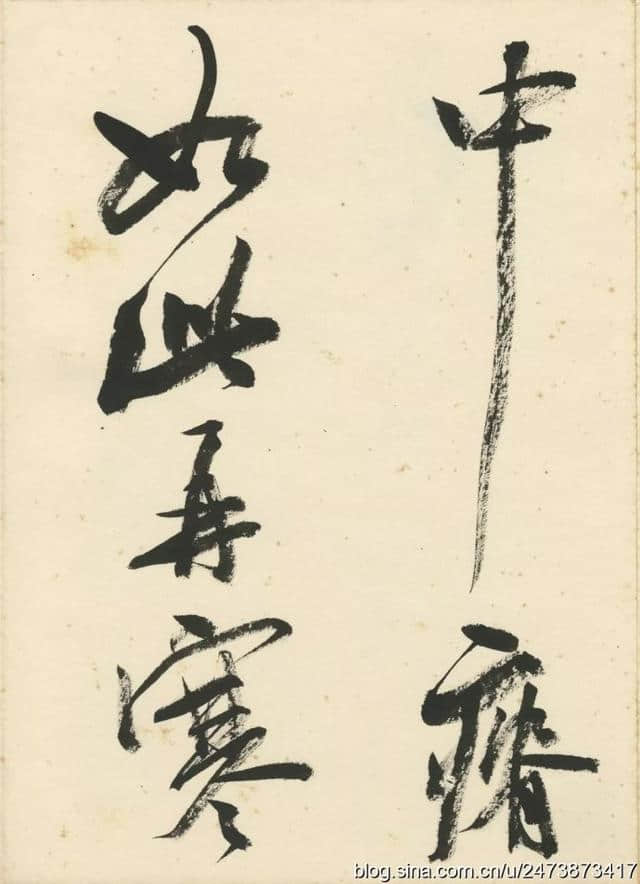 中
如此再寒
blog.sina.com.cn/u/2473873417